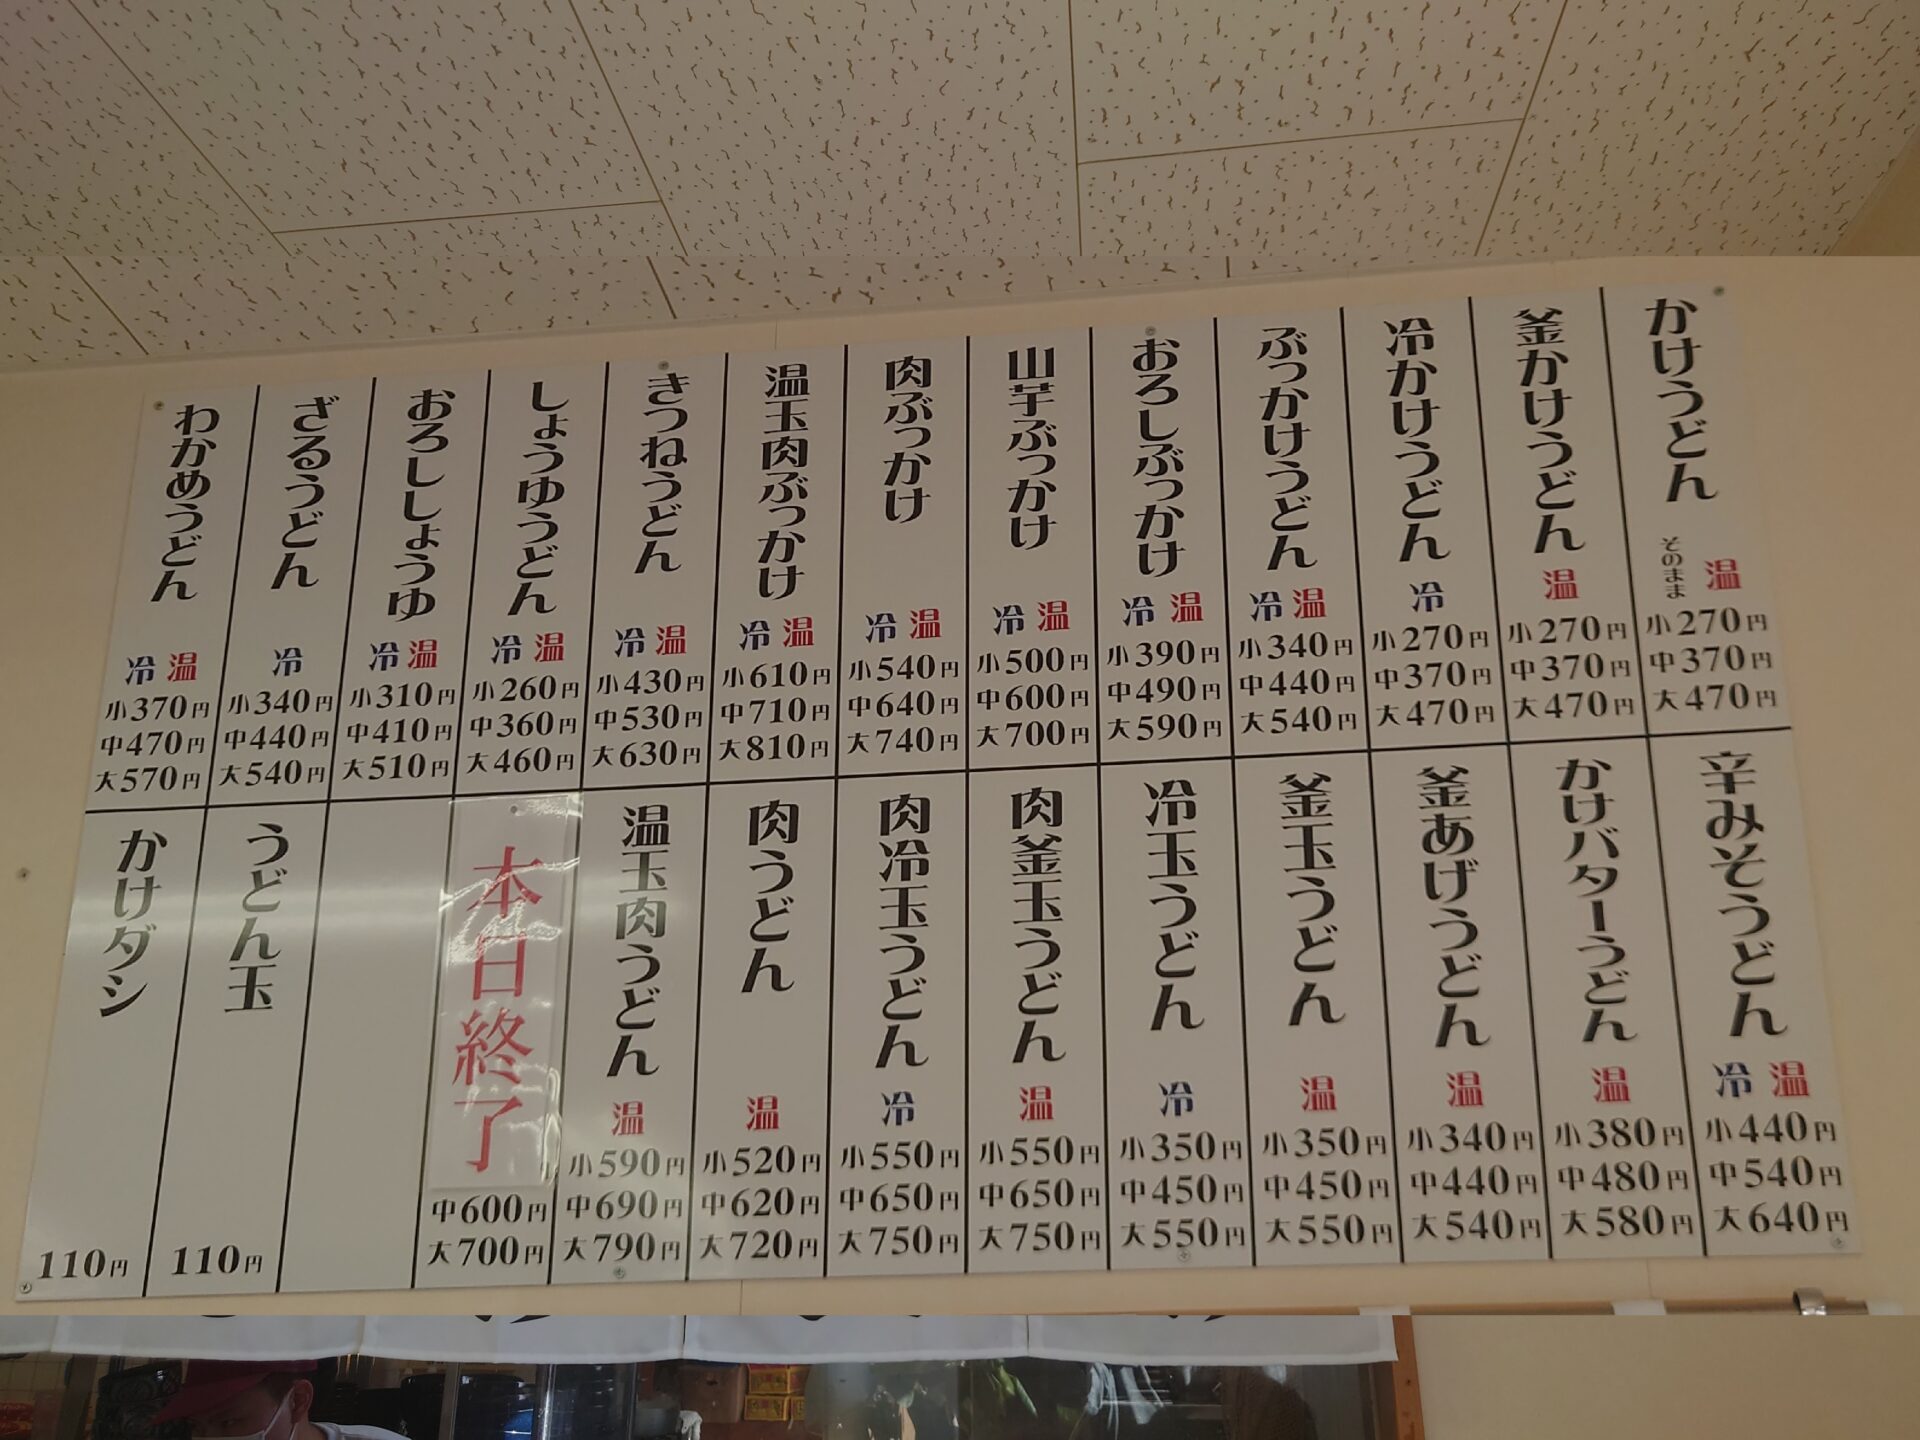 かけうどん
そのまま
温
小270円
中370円
大470円
釜かけうどん
温
小270円
中370円
大470円
冷かけうどん
冷
小270円
中370円
大470円
ぶっかけうどん
冷 温
小340円
中440円
大540円
おろしぶっかけ
冷 温
小390円
中490円
大590円
山芋ぶっかけ
冷 温
小500円
中600円
大700円
肉ぶっかけ
冷 温
小540円
中640円
大740円
温玉肉ぶっかけ
冷 温
小610円
中710円
大810円
きつねうどん
冷 温
小430円
中530円
大630円
しょうゆうどん
冷 温
小260円
中360円
大460円
おろししょうゆ
冷 温
小310円
中410円
大510円
ざるうどん
冷
小340円
中440円
大540円
わかめうどん
冷 温
小370円
中470円
大570円
辛みそうどん
冷 温
小440円
中540円
大640円
かけバターうどん
温
小380円
中480円
大580円
釜あげうどん
温
小340円
中440円
大540円
釜玉うどん
温
小350円
中450円
大550円
冷玉うどん
冷
小350円
中450円
大550円
肉釜玉うどん
温
小550円
中650円
大750円
肉冷玉うどん
冷
小550円
中650円
大750円
肉うどん
温
小520円
中620円
大720円
温玉肉うどん
温
小590円
中690円
大790円
本日終了
中600円
大700円
うどん玉
110円
かけダシ
110円